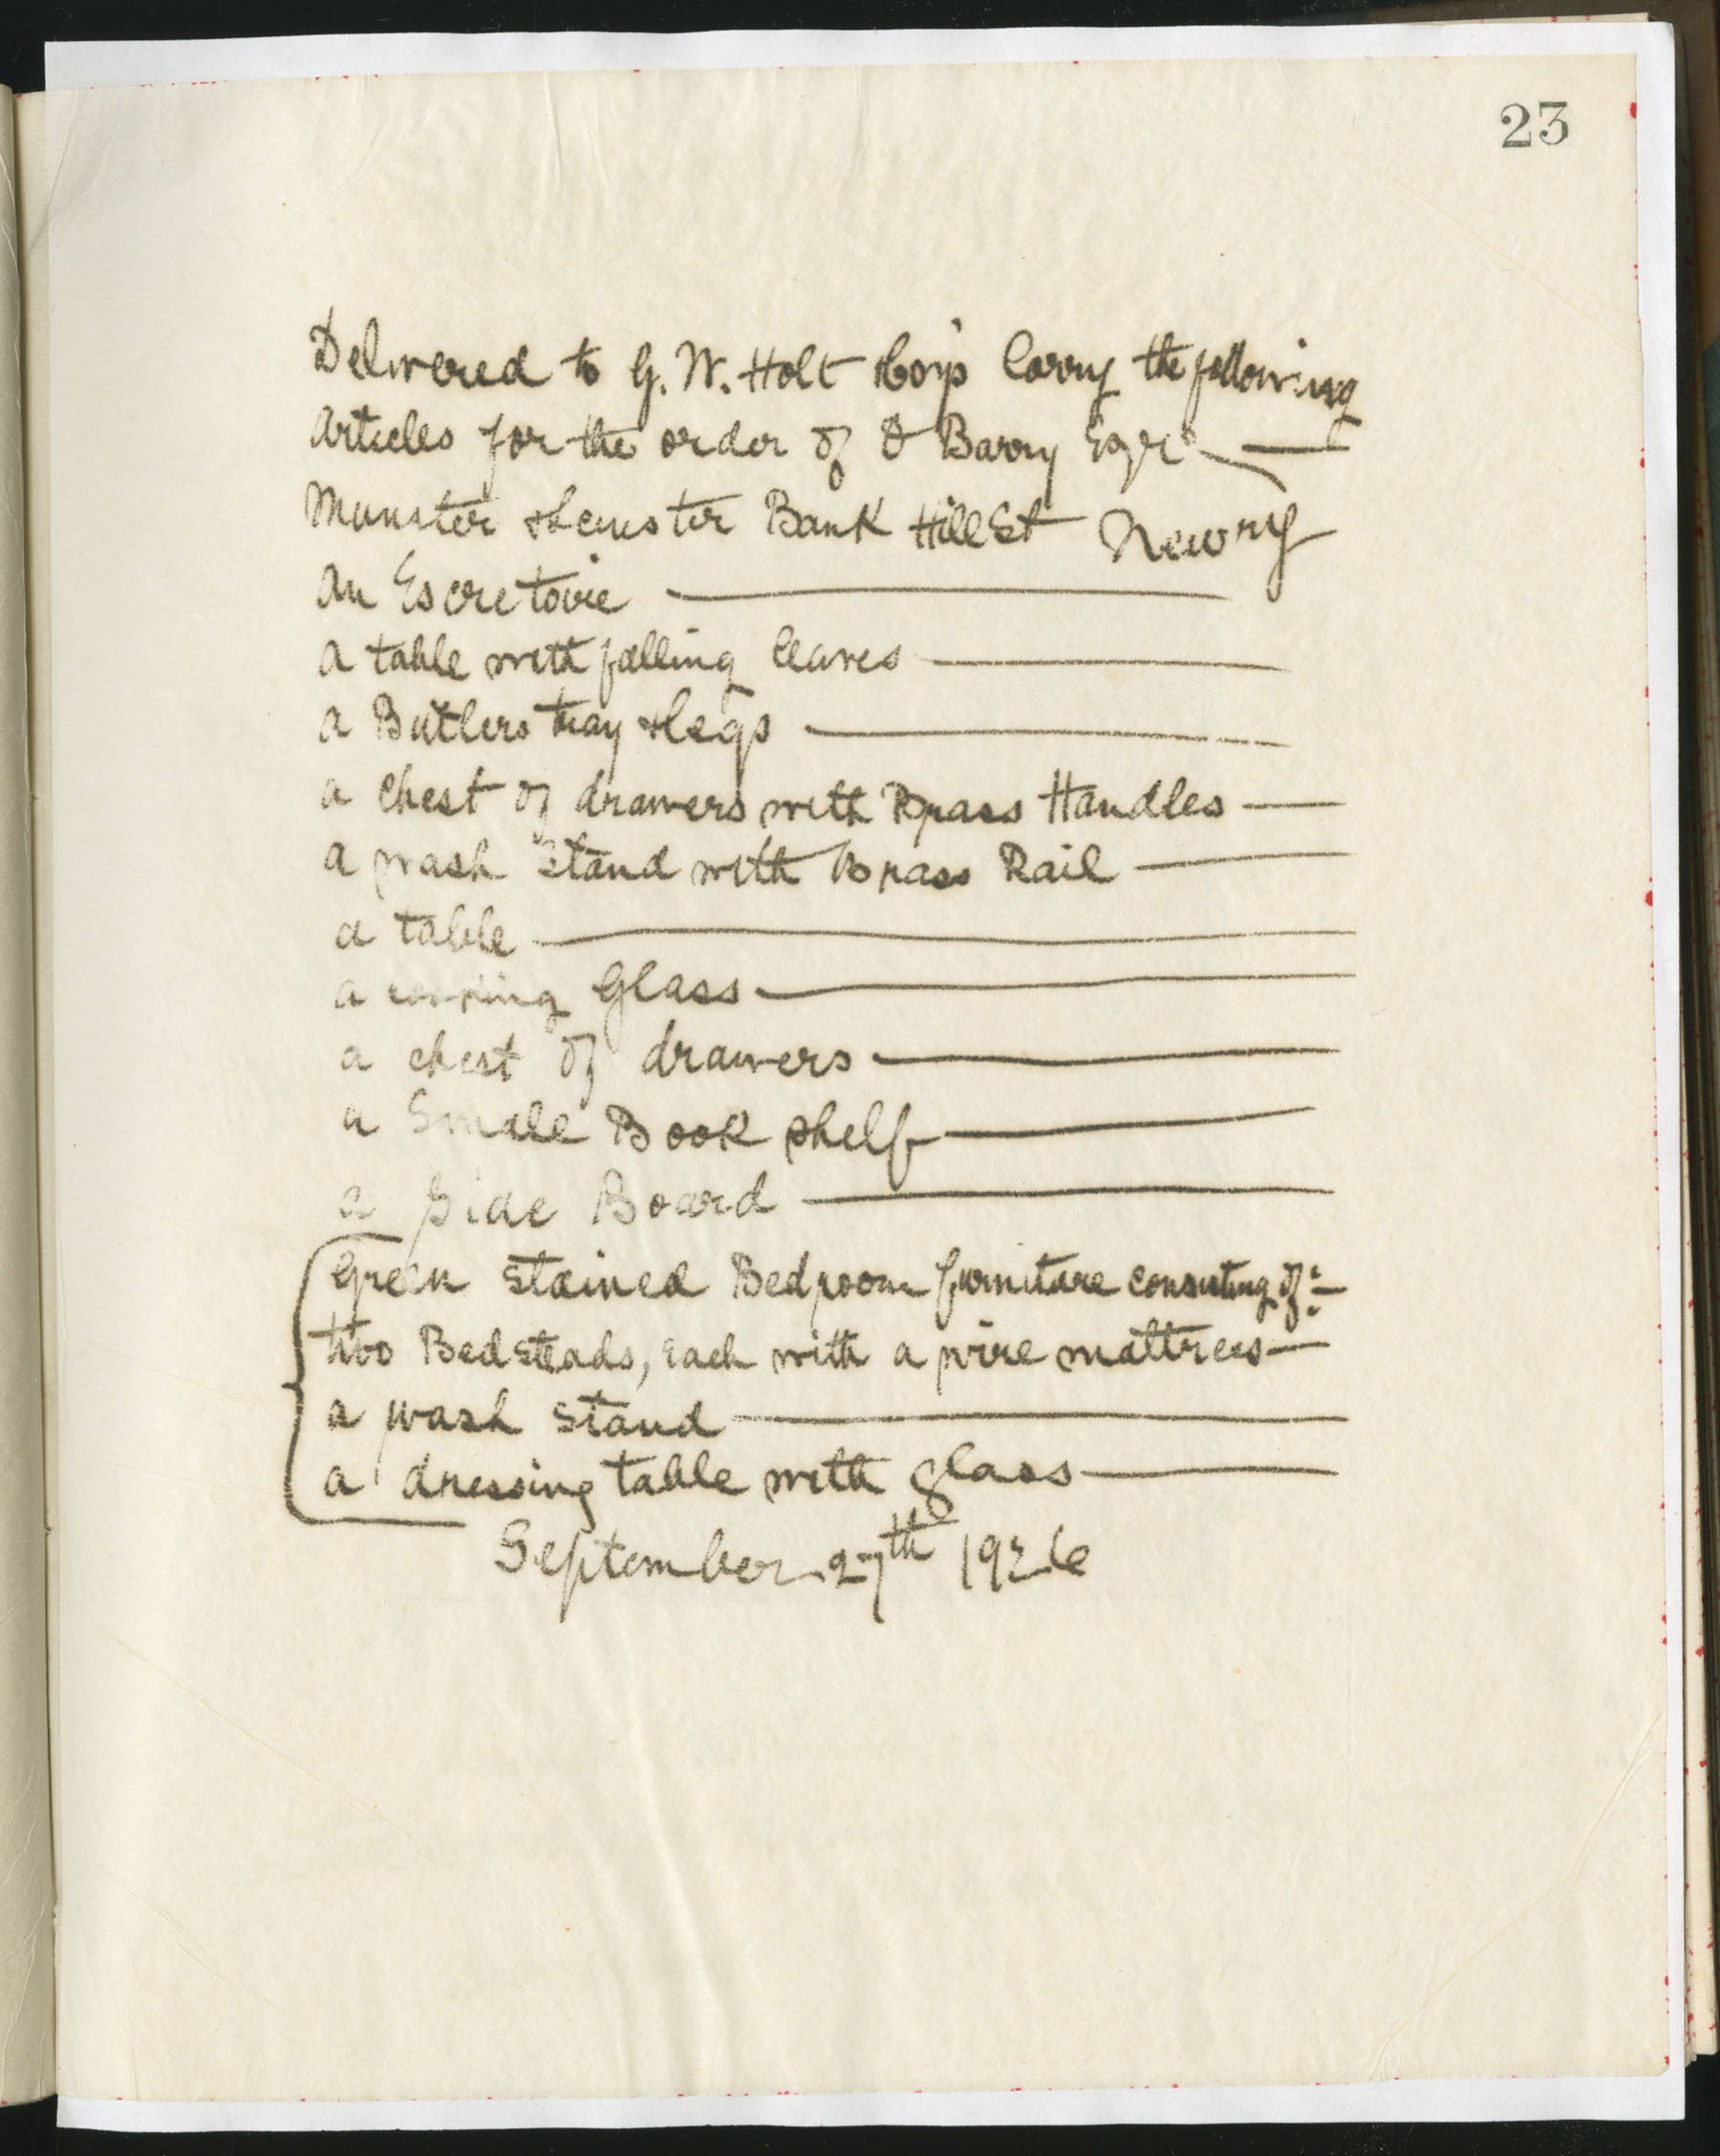 23
Delivered to G. W. Holt & Co's Lorry the following
Articles for the order of D Barry Esqre
Munster & Leinster Bank Hill St Newry
An Escretoire
A table with falling leaves
A Butlers tray & legs
a Chest of drawers with Brass Handles
a wash Stand with Brass Rail
a table
a looking Glass
a chest of drawers
a Small Book shelf
a Side Board
Green Stained Bedroom furniture consisting of:-
two Bedsteads, Each with a wire mattress
a wash Stand
a dressing table with glass
September 27th 1926